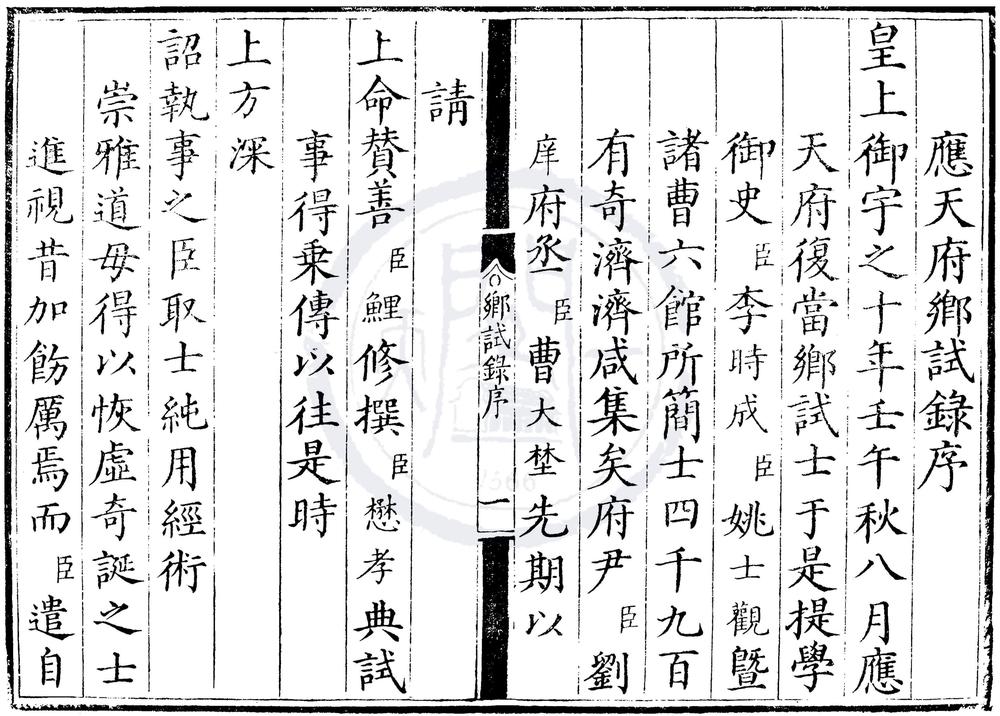 應天府鄉試錄序
皇上御宇之十年壬午秋八月應
天府復當鄉試士于是提學
御史臣李時成臣姚士觀暨
諸曹六館所簡士四千九百
有奇濟濟咸集矣府尹臣劉
庠府丞臣曹大埜先期以
鄉試錄序
一
請
上命贊善臣鯉修撰臣懋孝典試
事得乘傳以往是時
上方深
詔執事之臣取士純用經術
崇雅道毋得以恢虛奇誕之士
進視昔加飭厲焉而臣遣自